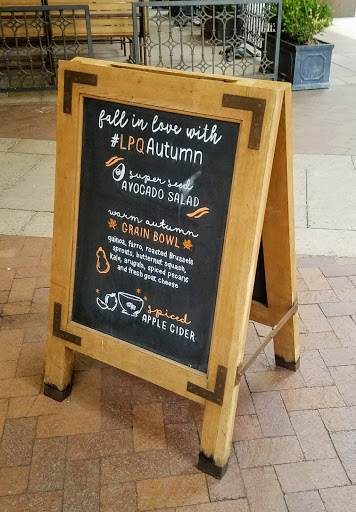 fall in love with
#LPQAutumn
super seed
AVOCADO SALAD
warm autumn
GRAIN BOWL
quinoa, farro, roasted Brussels
sprouts, butternut squash,
Kale, arugula, spiced pecans
and fresh goat cheese
spiced
APPLE CIDER